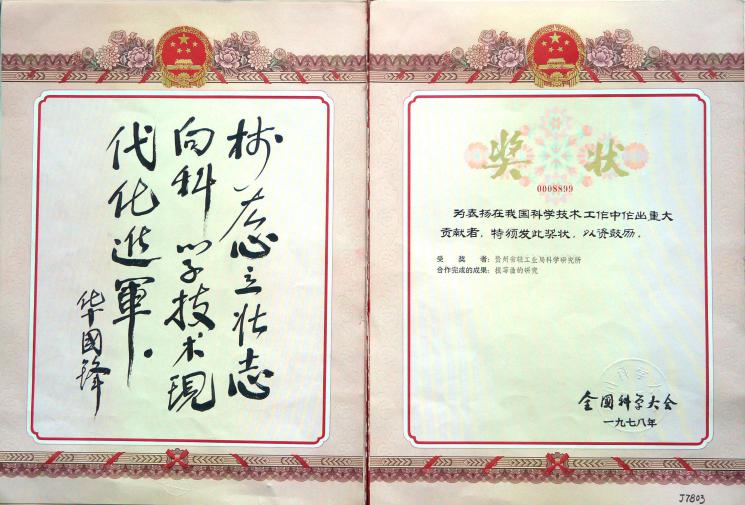 树雄心立壮志
向科学技术現
代化進軍。
华國锋
奖状
0008899
为表扬在我国科学技术工作中作出重大
贡献者，特颁发此奖状，以资鼓励。
受奖者：贵州省轻工业局科学研究所
合作完成的成果：根霉曲的研究
全國科学大会
一九七八年
J7803